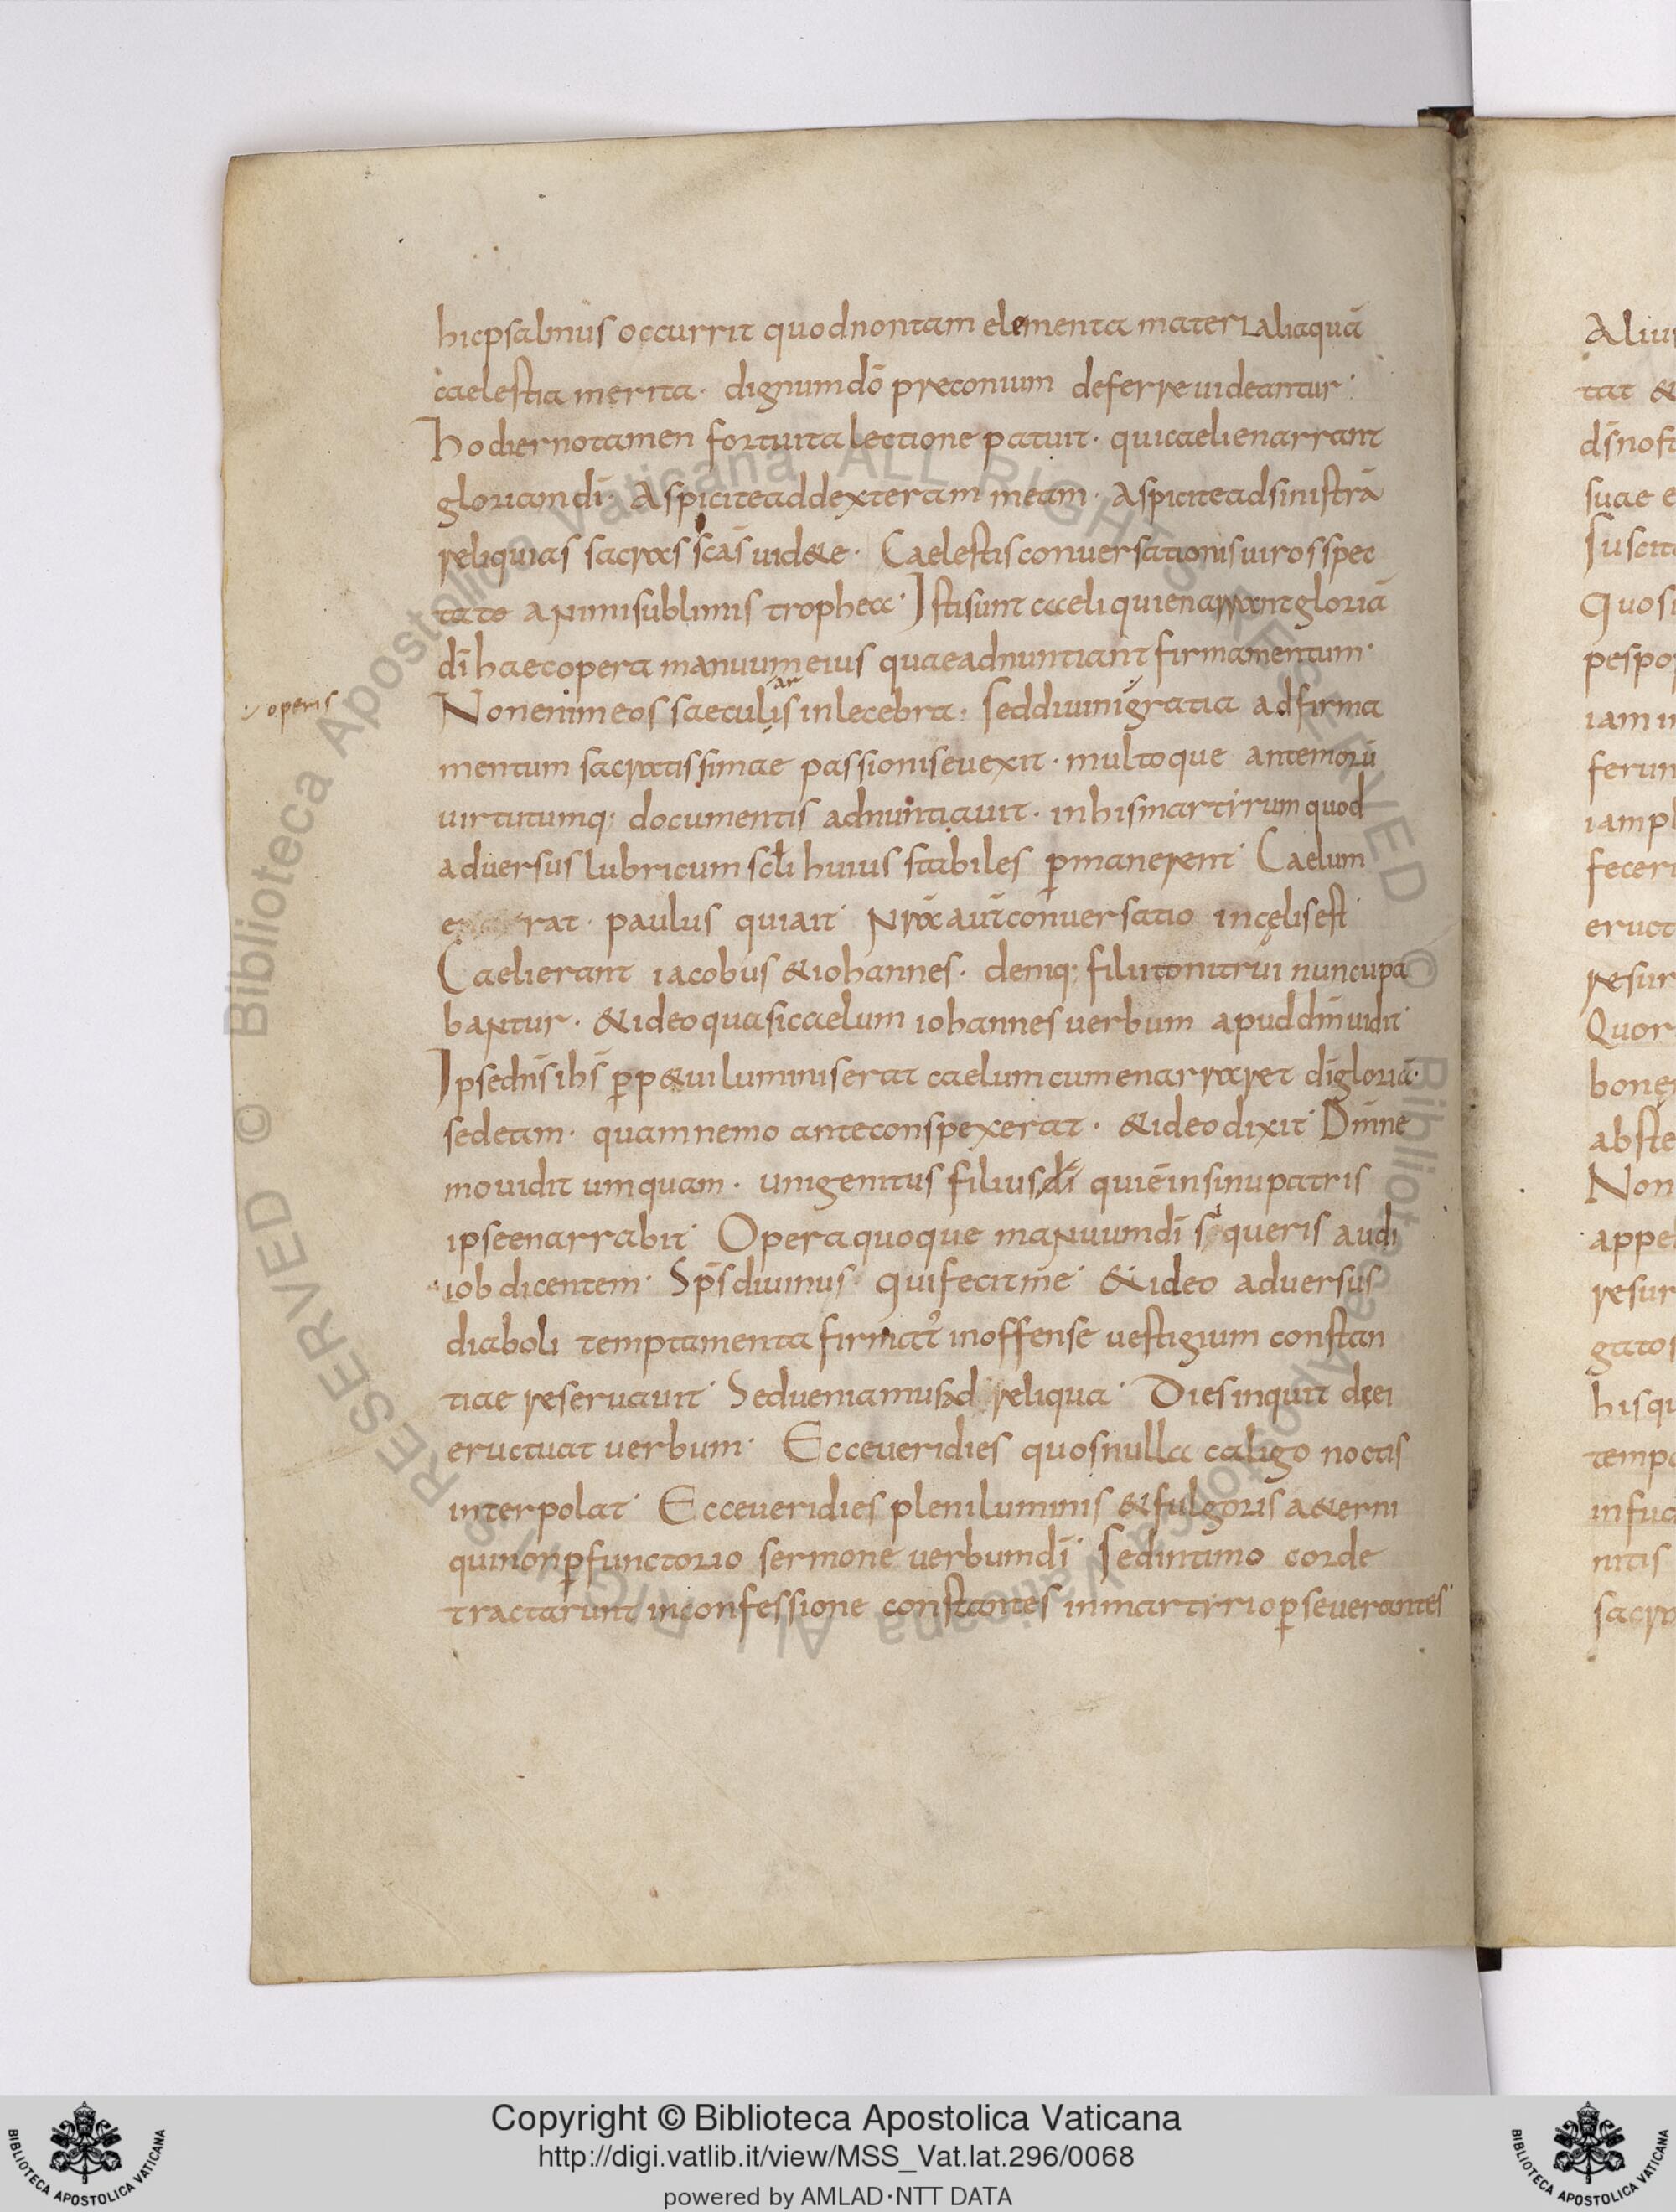 hic psalmus occurrit quod non tam elementa materialia quā
caelestia merita · dignum dō preconium deferre uideantur ·
hodierno tamen fortuita lectione patuit · qui caeli enarrant
gloriam dī · Aspicite ad dexteram meam · Aspicite ad sinistrā
reliquias sacras scās uid&e · Caelestis conuersationis uiros spec
tate animi sublimis trophea · Isti sunt caeli qui enarrant gloriā
dī haec opera manuum eius quae adnuntiant firmamentum ·
operis
Non enim eos saecularis inlecebra · sed diuini gratia ad firma
mentum sacratissimae passionis euexit · multoque ante morū
uirtutumq; documentis adnuntiauit · in his martirum quod
aduersus lubricum scłi huius stabiles p̄manerent · Caelum
rat · paulus qui ait · Nrā aut̄ conuersatio in cęlis est ·
Caeli erant iacobus & iohannes · deniq; filii tonitrui nuncupa
bantur · & ideo quasi caelum iohannes uerbum apud dm̄ uidit ·
Ipse dn̄s ihs̄ p̄p&ui luminis erat caelum cum enarraret dī gloriā ·
sed eam · quam nemo ante conspexerat · & ideo dixit · Dm̄ ne
mo uidit umquam · unigenitus filius dī qui ē in sinu patris
ipse enarrabit · Opera quoque manuum dī si queris audi
iob dicentem · Sps̄ diuinus qui fecit me · & ideo aduersus
diaboli temptamenta firmat᾽ inoffense uestigium constan
tiae reseruauit · Sed ueniamus ad reliqua · Dies inquit diei
eructuat uerbum · Ecce ueri dies quos nulla caligo noctis
interpolat · Ecce ueri dies pleni luminis & fulgoris a&erni
qui non p̄functorio sermone uerbum dī · sed intimo corde
tractarunt in confessione constantes in martirio p̄seuerantes ·
Aliu
tat &
dsnost
suae e
suscit
Quos
pespo
iam
ferun
iampl
fecer
eruct
resur
Quor
bone
abste
Non
appe
resur
gato
his qu
temp
infuc
nitis
sacr
Copyright © Biblioteca Apostolica Vaticana
http://digi.vatlib.it/view/MSS_Vat.lat.296/0068
powered by AMLAD·NTT DATA
BIBLIOTECA APOSTOLICA VATICANA
BIBLIOTECA APOSTOLICA VATICANA
© Biblioteca Apostolica Vaticana ALL RIGHTS RESERVED